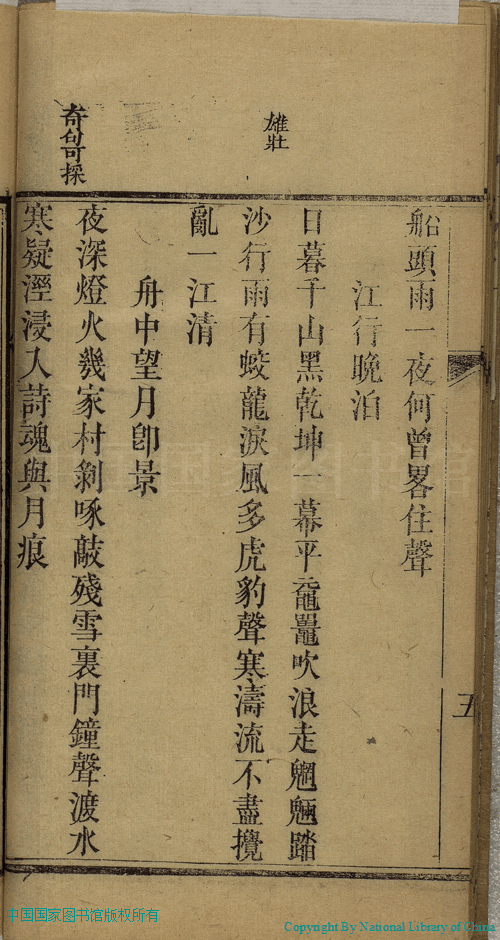 船頭雨一夜何曾畧住聲
江行晚泊
雄壯
日暮千山黑乾坤一幕平黿鼉吹浪走魍魎踏
沙行雨有蛟龍淚風多虎豹聲寒濤流不盡攪
亂一江清
舟中望月卽景
奇句可採
夜深燈火幾家村剝啄敲殘雪裏門鐘聲渡水
寒疑溼浸入詩魂與月痕
五
中国国家图书馆版权所有
Copyright By National Library of China